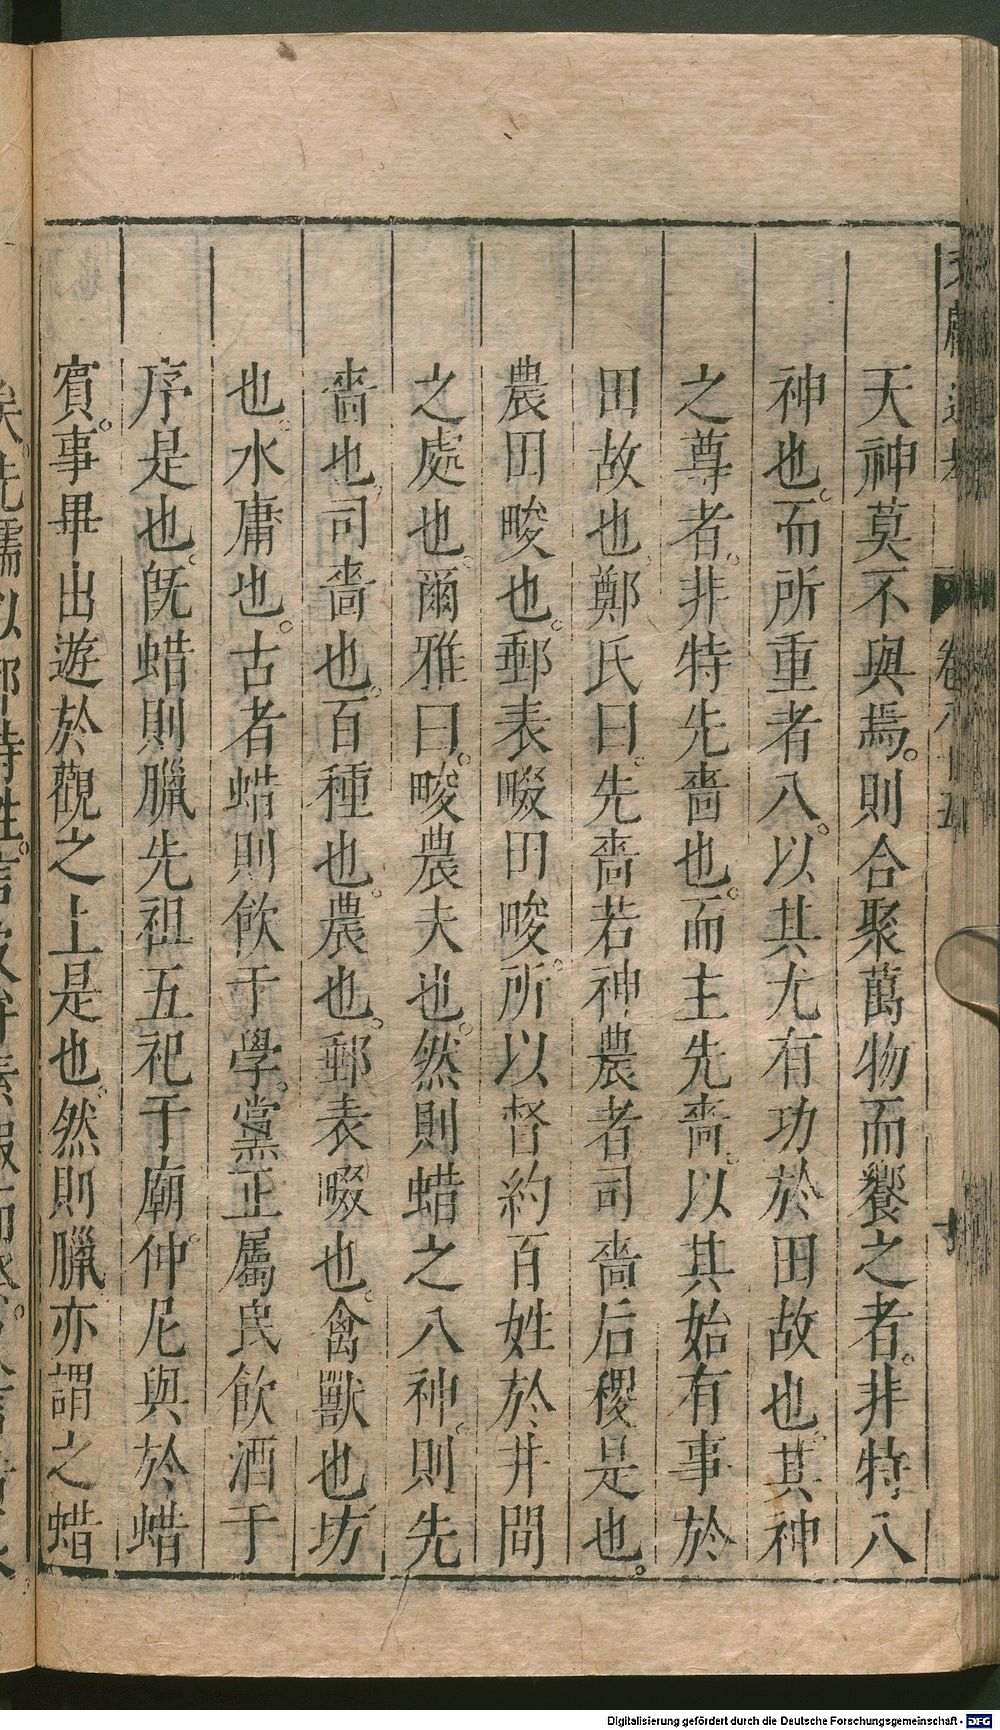 天神莫不與焉。則合聚萬物而饗之者。非特八
神也。而所重者八。以其尤有功於田故也。其神
之尊者。非特先嗇也。而主先嗇。以其始有事於
田故也。鄭氏曰。先嗇若神農者司嗇后稷是也。
農田畯也。郵表畷田畯。所以督約百姓於井間
之處也。爾雅曰。畯農夫也。然則蜡之八神。則先
嗇也。司嗇也。百種也。農也。郵表畷也。禽獸也。坊
也。水庸也。古者蜡則飲于學。黨正屬民飲酒于
序是也。旣蜡則臘先祖五祀于廟。仲尼與於蜡
賓。事畢出遊於觀之上是也。然則臘亦謂之蜡
Digitalisierung gefördert durch die Deutsche Forschungsgemeinschaft - DFG